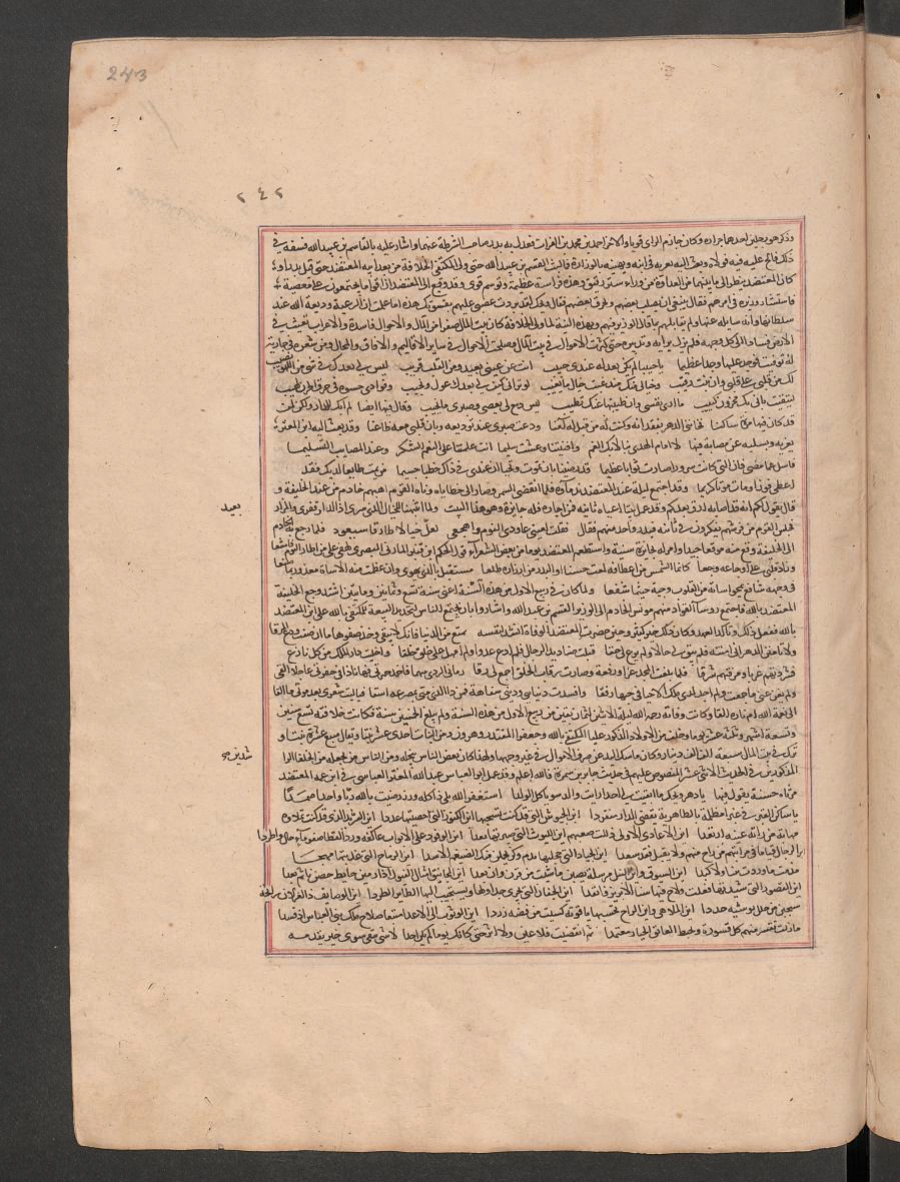 243
٢٤٢
وذكر هو رجلين احدهما جراده وكان حازم الراي قويا والاخر احمد بن محمد بن الفرات فعدل به بدر صاحب الشرطة عنهما واشار عليه بالقاسم بن عبيد الله فسفه
ذلك فالح عليه فيه فولاه وبعث اليه يعزيه في ابيه ويهنيه بالوزارة فما لبث القسم بن عبيد الله حتى ولي المكتفي الخلافة من بعد ابيه المعتضد حتى قتل بدرا و
كان المعتضد ينظر الى ما بينهما من العداوة من وراء ستر رقيق وهذه فراسة عظيمة وتوسم قوي ورفع الى المعتضد ان اقواما يجتمعون على معصية
فاستشار وزيره في امرهم فقال ينبغي ان يصلب بعضهم ويحرق بعضهم فقال ويحك لقد بردت غضبي عليهم بقسوتك هذه اما علمت ان الرعية وديعة الله عند
سلطانها وانه سايله عنها ولم يقابلهم بما قال الوزير فيهم ولهذه النية لما ولي الخلافة كان بيت المال صفرا من المال والاحوال فاسدة والاعراب تعيث في
الارض فسادا في كل وجهة فلم يزل برايه وتدبيره حتى كثرت الاموال في بيت المال وصلحت الاحوال في ساير الاقاليم والافاق والمحال ومن شعره في جارية
له توفيت فوجد عليها وجدا عظيما يا حبيبا لم يكن يعدله عندي حبيب انت عن عيني بعيد ومن القلب قريب ليس لي بعدك في شي من اللهو نصيب
لك من قلبي على قلبي وان بنت رقيب وخيالي منك مذ غبت خيال ما يغيب لو تراني كيف لي بعدك عول ونحيب وفوادي حشوه من حرق الحزن لهيب
لتيقنت باني بك محزون كئيب ما ارى نفسي وان طيبتها عنك تطيب ليس دمع لي يعصي وصبري ما يجيب وقال فيها ايضا لم ابك للدار ولكن لمن
قد كان فيها مرة ساكنا فخانني الدهر بفقدانه وكنت من قبل له آمنا ودعت صبري عند توديعه وبان قلبي معه ظاعنا وقد بعث اليه ابن المعتز
يعزيه ويسليه عن مصابه فيها يا امام الهدى بنا لا بك الغم وافنيتنا وعشت سليما انت علمتنا على النعم الشكر وعند المصايب التسليما
فاسل عما مضى فان التي كانت سرورا صارت ثوابا عظيما قد رضينا بان نموت وتحيا ان عندي في ذاك حظا جسيما من يمت طايعا لديك فقد
اعطي فوزا ومات موتا كريما وقد اجتمع ليلة عند المعتضد ندماؤه فلما انقضى السمر وصار الى حظاياه ونام القوم انبههم خادم من عند الخليفة و
قال يقول لكم انه قد اصابه ارق بعدكم وقد عمل بيتا اعياه ثانيه فمن اجازه فله جايزة وهو هذا البيت ولما انتبهنا للخيال الذي سرى اذا الدار قفرى والمزار
بعيد
فجلس القوم من فرشهم يفكرون في ثانيه فبدر واحد منهم فقال فقلت لعيني عاودي النوم واهجعي لعل خيالا طارقا سيعود فلما رجع به الخادم
الى الخليفة وقع منه موقعا جيدا وامر له بجايزة سنية واستعظم المعتضد يوما من بعض الشعراء قول الحكم ابن قنبر المازني البصري
وزاد قلبي على اوجاعه وجعا كانما الشمس من اعطافه لمعت حسنا او البدر من ازراره طلعا مستقبل بالذي يهوى وان عظمت منه الاساة معذور بما صنعا
في وجهه شافع يمحو اساءته من القلوب وجيه حيثما شفعا ولما كان في ربيع الاول من هذه السنة اعني سنة تسع وثمانين ومايتين اشتد وجع الخليفة
المعتضد بالله فاجتمع روسا القواد منهم مونس الخادم الى الوزير القسم بن عبيد الله واشاروا بان يجتمع الناس لتجديد البيعة للمكتفي بالله علي بن المعتضد
بالله ففعل ذلك وتاكد العهد وكان في ذلك خير كثير وحين حضرت المعتضد الوفاة انشد لنفسه تمتع من الدنيا فانك لا تبقى وخذ صفوها ما ان صفت ودع الرنقا
ولا تامنن الدهر اني امنته فلم يبق لي حالا ولم يرع لي حقا قتلت صناديد الرجال فلم ادع عدوا ولم امهل على خلق خلقا واخليت دار الملك من كل نازع
فشردتهم غربا ومزقتهم شرقا فلما بلغت النجم عزا ورفعة وصارت رقاب الخلق اجمع لي رقا رماني الردى سهما فاخمد جمرتي فها انا ذا في حفرتي عاجلا القى
ولم يغن عني ما جمعت ولم اجد لدى ملك الاحيا في حبها رفقا وافسدت دنياي وديني سفاهة فمن ذا الذي مني بمصرعه اشقا فيا ليت شعري بعد موتي ما القا
الى نعمة الله ام ناره القا وكانت وفاته رحمه الله ليلة الاثنين لثمان بقين من ربيع الاول من هذه السنة ولم يبلغ الخمسين سنة فكانت خلافته تسع سنين
وتسعة اشهر وثلثة عشر يوما وخلف من الاولاد الذكور عليا المكتفي بالله وجعفرا المقتدر وهرون ومن البنات احدى عشر بنتا ويقال سبع عشرة بنتا و
ترك في بيت المال سبعة عشر الف الف دينار وكان ممسكا اليد عن صرف الاموال في غير وجهها ولهذا كان بعض الناس يبخله ومن الناس من يجعله من الخلفا الرا
شدين
المذكورين في الحديث الاثني عشر المنصوص عليهم في حديث جابر بن سمرة فالله اعلم وقد عمل ابو العباس عبد الله بن المعتز العباسي في ابن عمه المعتضد
مرثاه حسنة يقول فيها يا دهر ويحك ما ابقيت لي احدا وانت والد سوء تاكل الولدا استغفر الله بل ذا كله قدر رضيت بالله ربا واحدا صمدا
يا ساكن القبر في غبراء مظلمة بالظاهرية مقصى الدار منفردا اين الجيوش التي قد كنت تسحبها اين الكنوز التي احصيتها عددا اين السرير الذي قد كنت تملاه
مهابة من راته عينه ارتعدا اين الاعادي الاولى ذللت صعبهم اين الليوث التي صيرتها بعدا اين الوفود على الابواب عاكفة ورد القطا صفو ماء جال واطردا
اين الرجال قياما في مراتبهم من راح منهم ولم يطمر فقد سعدا اين الجياد التي حجلتها بدم وكن يحملن منك الضيغم الاسدا اين الرماح التي غذيتها مهجا
مذ مت ما وردت قلبا ولا كبدا اين السيوف واين النبل مرسلة يصبن ما شئت من قرن وان بعدا اين المجانيق امثال الفيول اذا رمين حايط حصن قايم قعدا
اين القصور التي شيدتها فعلت ولاح فيها سنا الابريز فاتقدا اين الجنان التي تجري جداولها ويستجيب اليها الطاير الغردا اين الوصايف كالغزلان رايحة
يسحبن من حلل موشية جددا اين الملاهي واين الراح تحسبها ياقوتة كسيت من فضة زردا اين الوثوب الى الاعداء مبتغيا صلاح ملك بني العباس اذ فسدا
ما زلت تقسر منهم كل قسورة وتحطم العاتي الجبار معتمدا ثم انقضيت فلا عين ولا اثر حتى كانك يوما لم تكن احدا لا شي يبقى سوى خير تقدمه